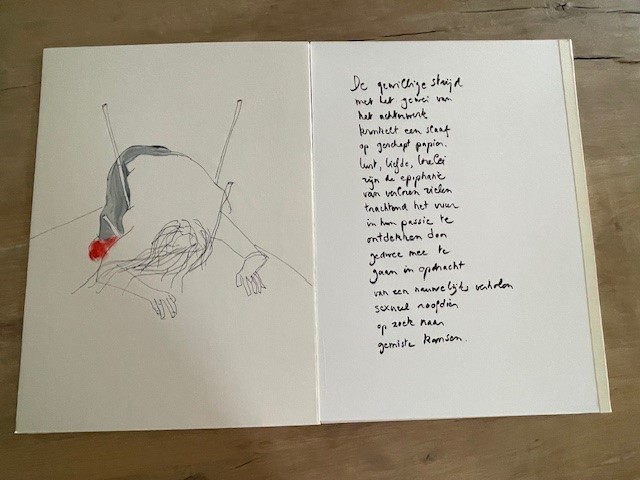 De gewillige strijd
met het gewei van
het achterwerk
kronkelt een slaaf
op geschept papier.
lust, liefde, Lorelei
zijn de epiphanie
van verloren zielen
trachtend het vuur
in hun passie te
ontdekken door
gedwee mee te
gaan in opdracht
van een nauwelijks verholen
sexueel roofdier
op zoek naar
gemiste kansen.